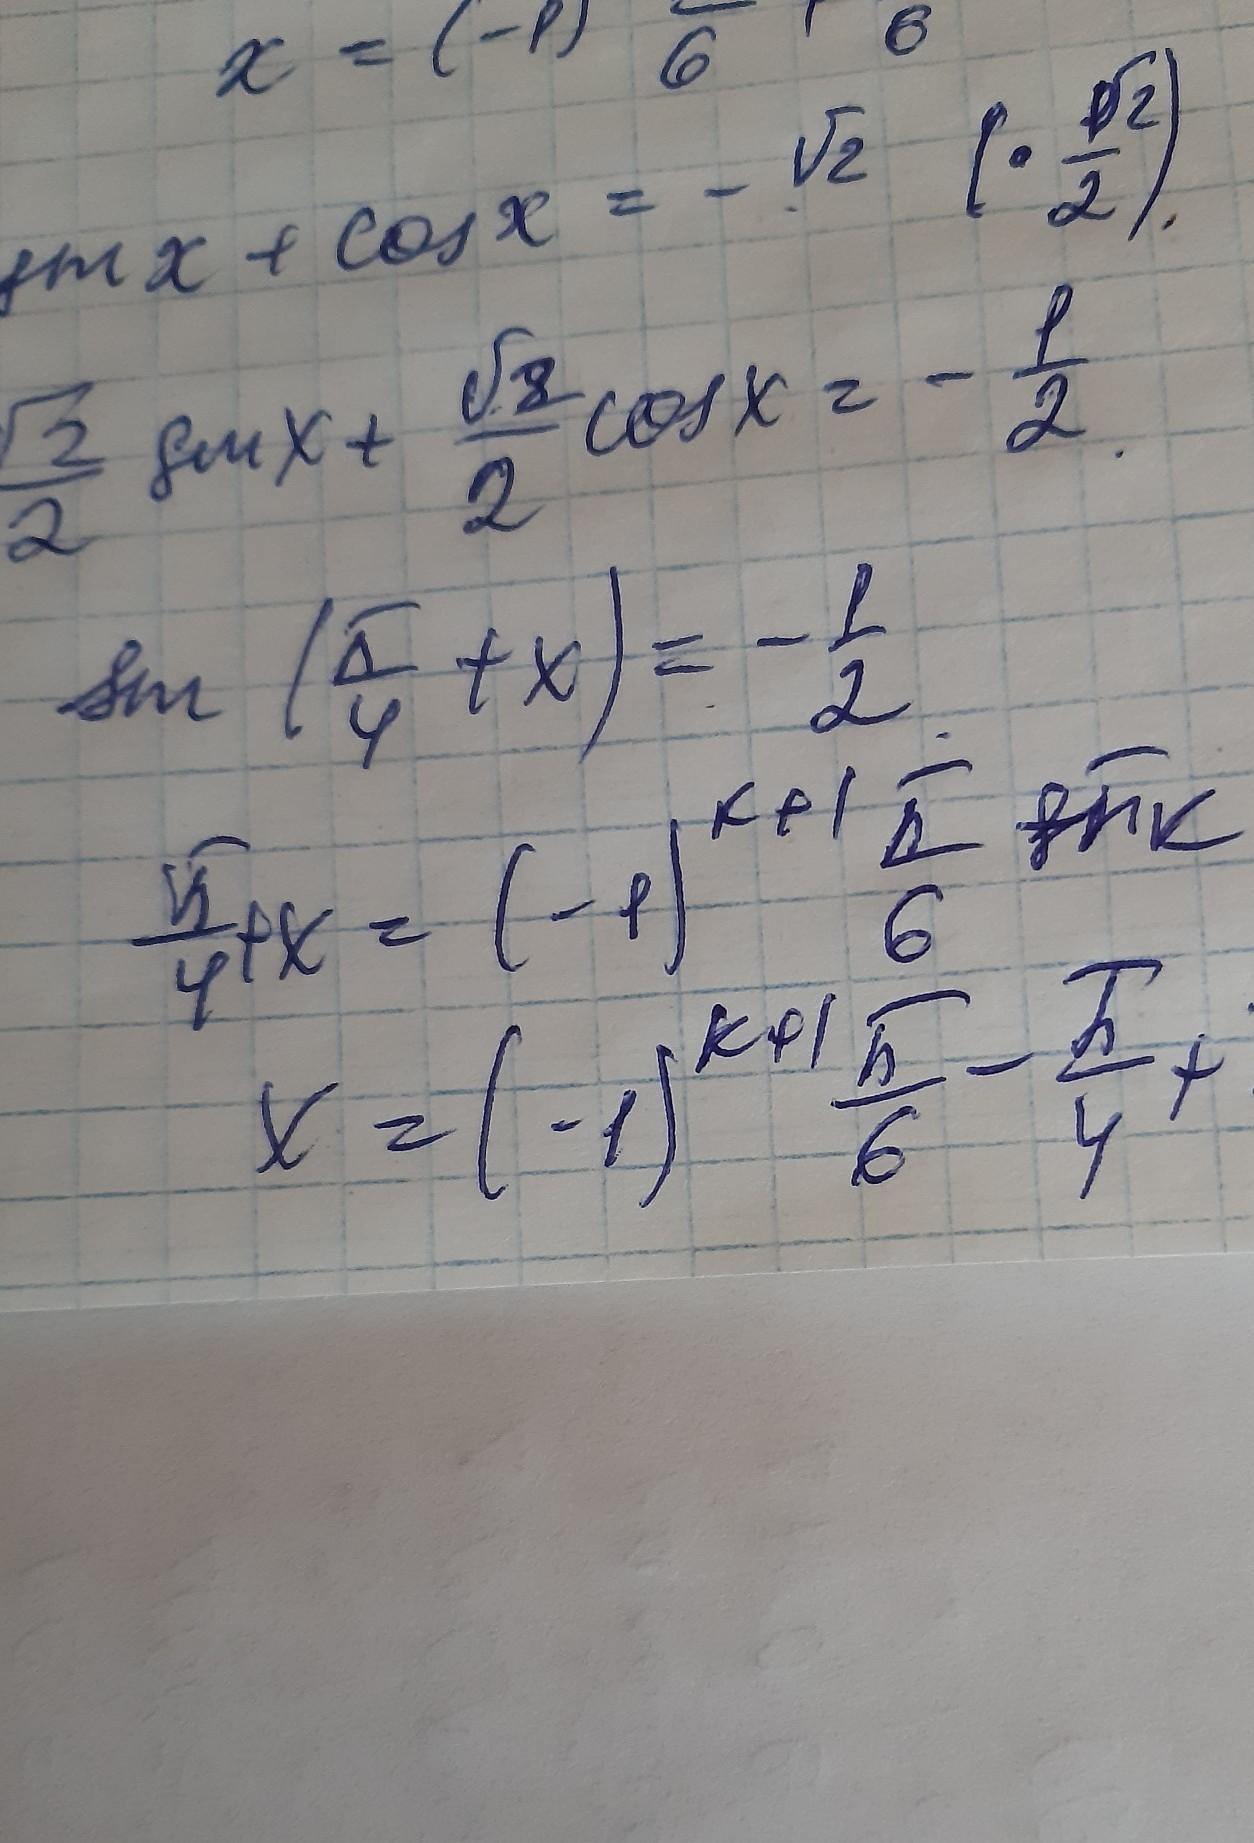 x = (-1) π/6 + 6
sin x + cos x = - √2 (· √2/2).
√2/2 sin x + √2/2 cos x = - 1/2.
sin (π/4 + x) = - 1/2.
π/4 + x = (-1)^{k+1} π/6 πk
x = (-1)^{k+1} π/6 - π/4 +